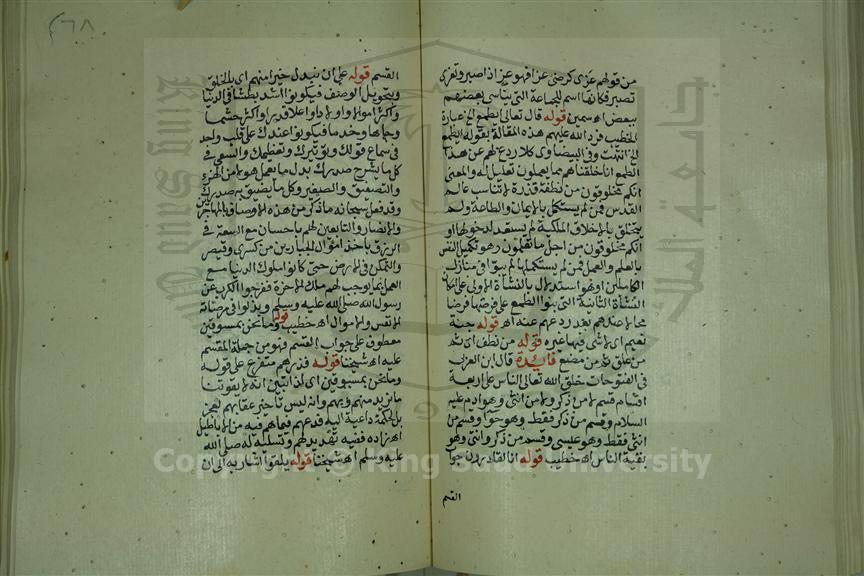 من قولهم عزى كرضى عزا فهو عز اذا صبر وتعزى
تصبر فكانها اسم للجماعة التي يتأسى بعضهم
ببعض اه سمين قوله قال تعالى ايطمع الخ عبارة
الخطيب فرد الله عليهم هذه المقالة بقوله ايطمع
الخ انتهت وفي البيضاوي كلا ردع لهم عن هذا
الطمع انا خلقناهم مما يعلمون تعليل له والمعنى
انكم مخلوقون من نطفة قذرة لا تناسب عالم
القدس فمن لم يستكمل بالايمان والطاعة ولم
يتخلق بالاخلاق الملكية لم يستعد لدخولها او
انكم مخلوقون من اجل ما تعلمون وهو تكميل النفس
بالعلم والعمل فمن لم يستكملها لم يبوأ في منازل
الكاملين او هو استدلال بالنشأة الاولى على امكان
النشأة الثانية التي بنوا الطمع على فرضها فرضا
محالا عندهم بعد ردعهم عنه اه قوله جنة
نعيم اى لا شئ فيها غيره قوله من نطف اى ثم
من علق ثم من مضغ فايدة قال ابن العربي
في الفتوحات خلق الله تعالى الناس على اربعة
اقسام قسم لا من ذكر ولا من انثى وهو ادم عليه
السلام وقسم من ذكر فقط وهو حوا وقسم من
انثى فقط وهو عيسى وقسم من ذكر وانثى وهو
بقية الناس اه خطيب قوله انا لقادرون جوا
القسم
٢٦٨
القسم قوله على ان نبدل خيرا منهم اى بالخلق
وبتحويل الوصف فيكونوا اشد بطشا في الدنيا
واكثر اموالا واولادا واعلا قدرا واكثر حشما
وجاها وخدما فيكونوا عندك على قلب واحد
في سماع قولك وتوقيرك وتعظيمك والسعي في
كل ما يشرح صدرك بدل ما يعمل هولاء من الهزء
والتصفيق والصفير وكل ما يضيق به صدرك
وقد فعل سبحانه ما ذكر من هذه الاوصاف بالمهاجرين
والانصار والتابعين لهم باحسان مع السعة في
الرزق باخذ اموال الجبارين من كسرى وقيصر
والتمكن في الارض حتى كانوا ملوك الدنيا مع
العمل بما يوجب لهم ملك الاخرة ففرجوا الكرب عن
رسول الله صلى الله عليه وسلم وبذلوا في مرضاته
الانفس والاموال اه خطيب قوله وما نحن بمسبوقين
معطوف على جواب القسم فهو من جملة المقسم
عليه اه شيخنا قوله فذرهم متفرع على قوله
وما نحن بمسبوقين اى اذا تبين انه لا يفوتنا
ما نريد منهم وبهم وانه ليس تاخير عقابهم لعجز
بل لحكمة داعية اليه فدعهم فيما هم فيه من الاباطيل
اه زاده ففيه تهديد لهم وتسلية له صلى الله
عليه وسلم اه شيخنا قوله يلقوا اشار به الى ان
Copyright © King Saud University